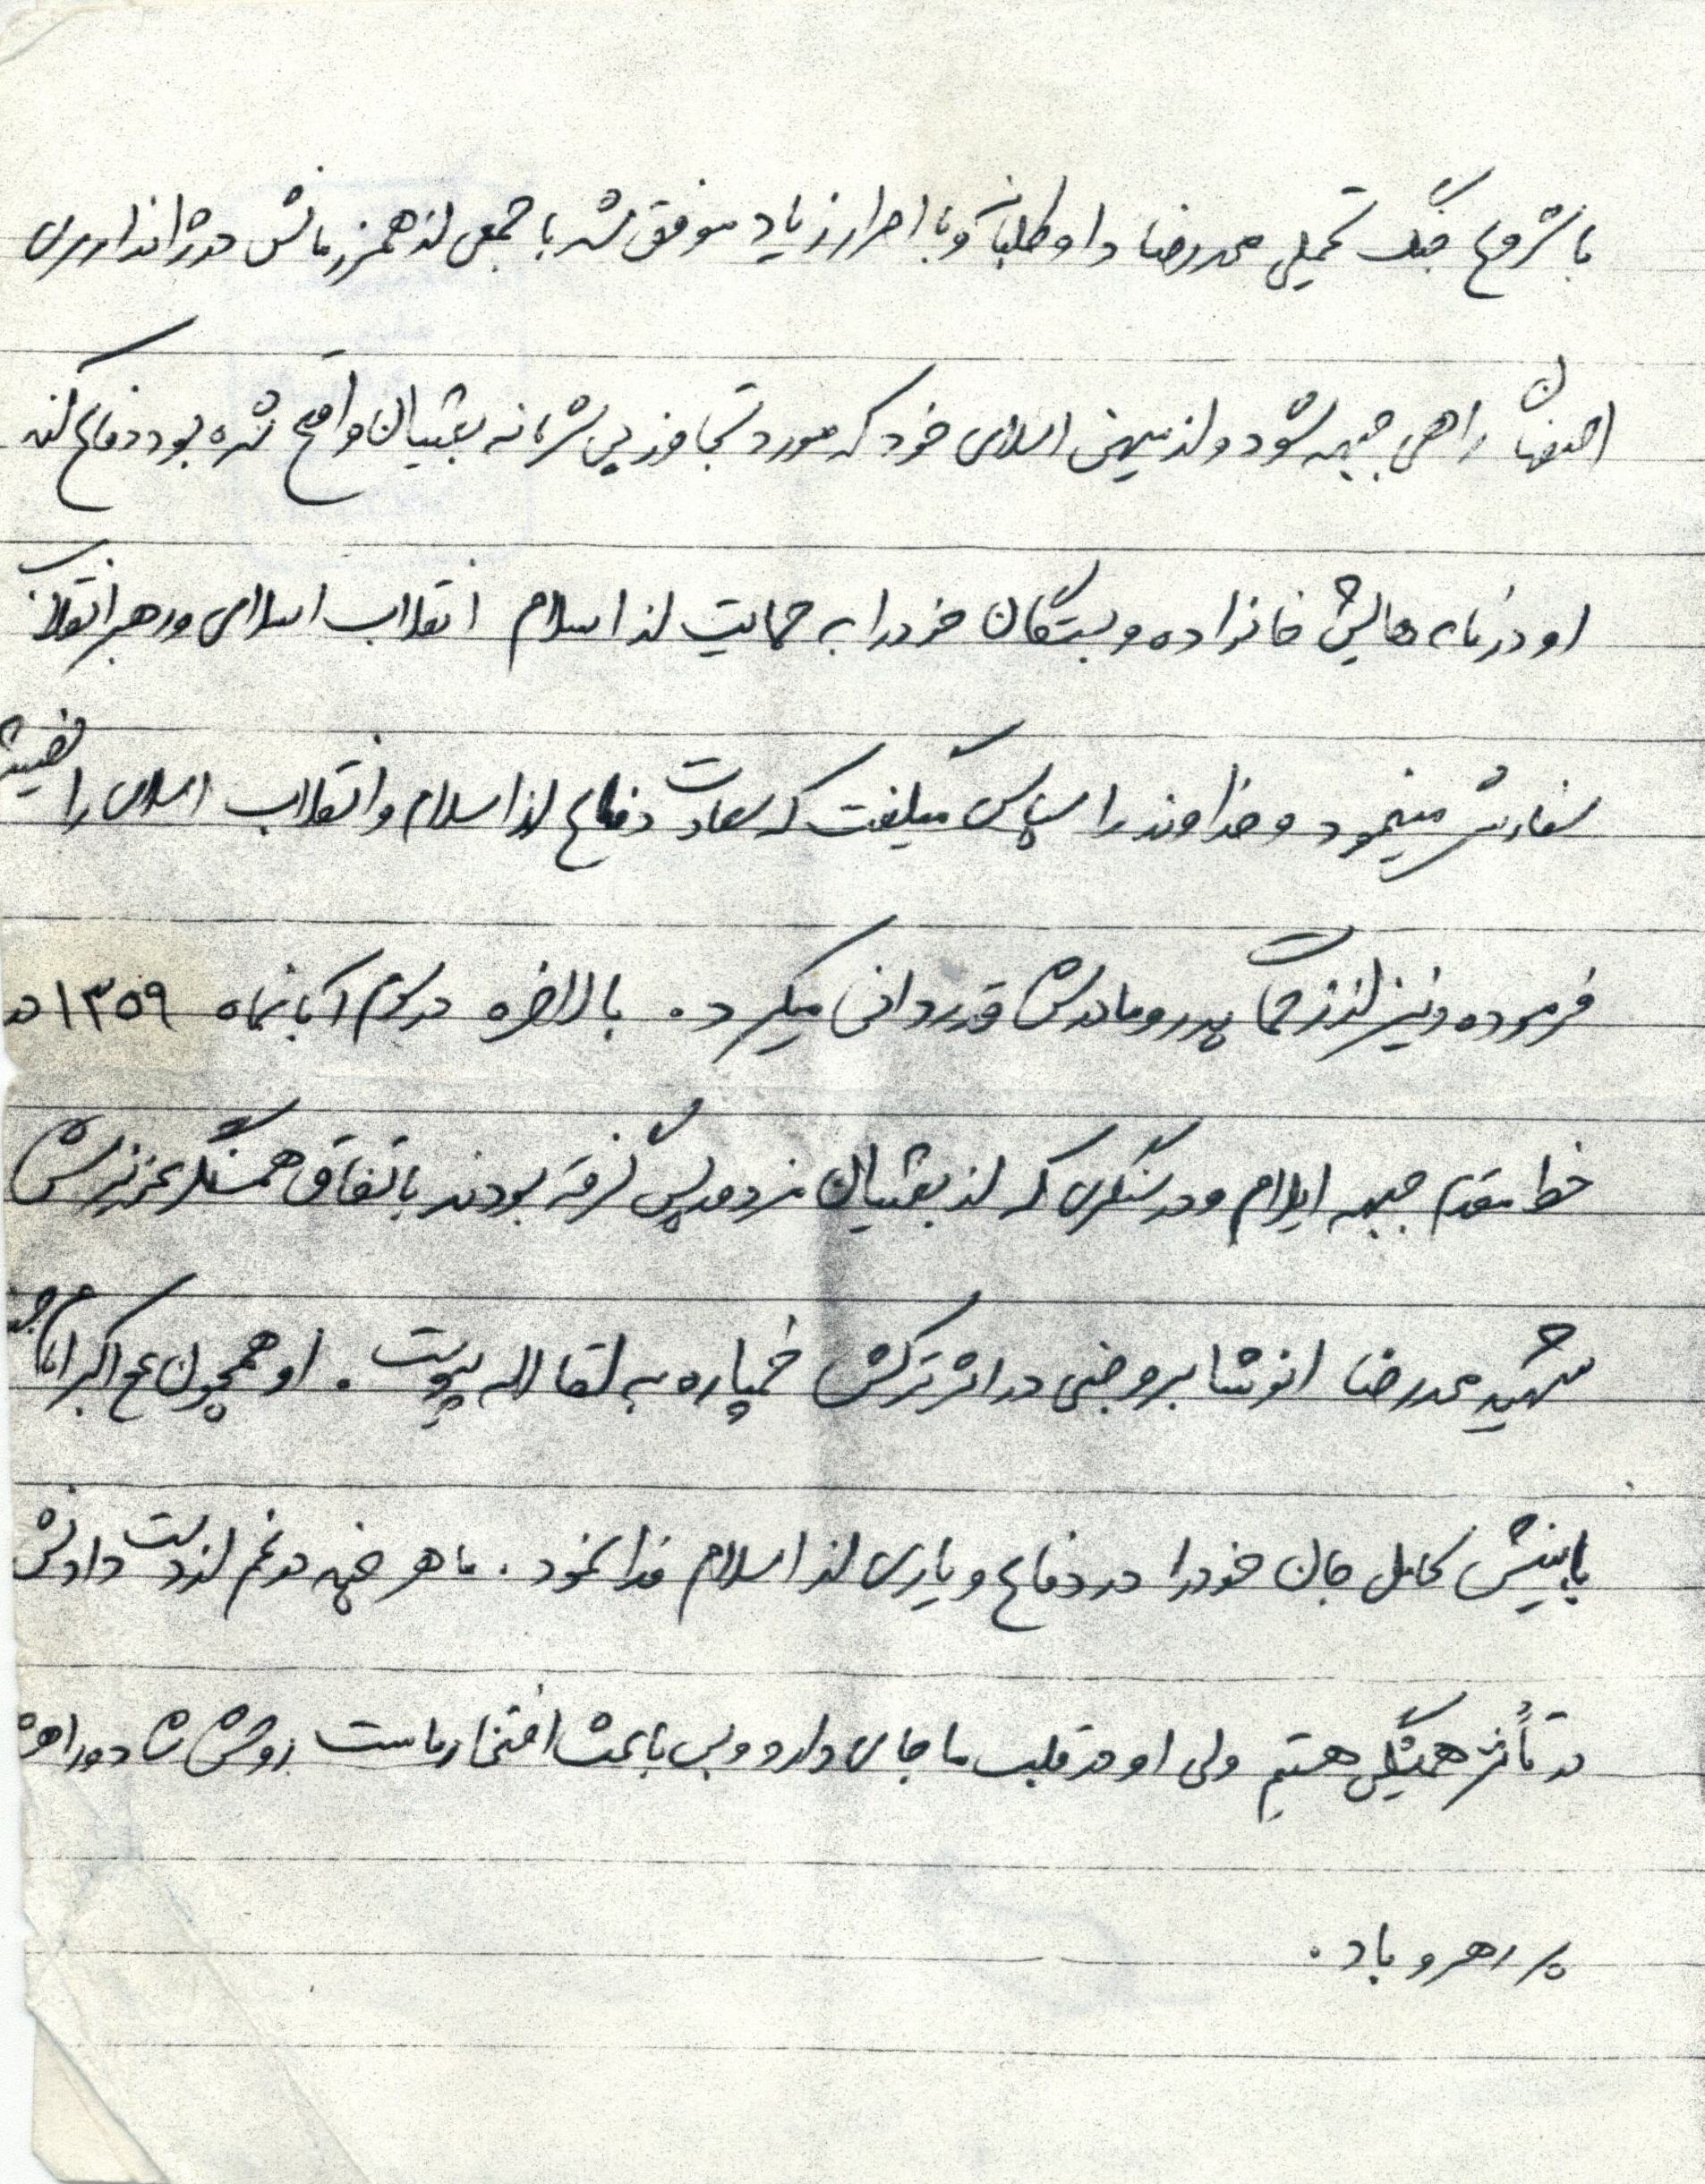 با شروع جنگ تحمیلی محمدرضا داوطلبانه و با اصرار زیاد موفق شد با جمعی از همرزمانش در ژاندارمری
اصفهان راهی جبهه شود و از میهن اسلامی خود که مورد تجاوز بی شرمانه بعثیان واقع شده بود دفاع کند
او در نامه هایش خانواده و بستگان خود را به حمایت از اسلام انقلاب اسلامی و رهبر انقلاب
سفارش مینمود و خداوند را سپاس میگفت که سعادت دفاع از اسلام و انقلاب اسلامی را نصیبش
فرموده و نیز از زحمات پدر و مادرش قدردانی میکرد. بالاخره در سوم آبانماه ۱۳۵۹ در
خط مقدم جبهه ایلام و در سنگری که از بعثیان مزدور پس گرفته بودند باتفاق همسنگر عزیزش
شهید محمدرضا انوشا بروجنی در اثر ترکش خمپاره به لقاالله پیوست. او همچون علی اکبر امام
با بینش کامل جان خود را در دفاع و یاری از اسلام فدا نمود. ما هر چه در غم از دست دادنش
در تأثر همیشگی هستیم ولی او در قلب ما جای دارد و بس باعث افتخار ماست روحش شاد و راهش
پر رهرو باد.